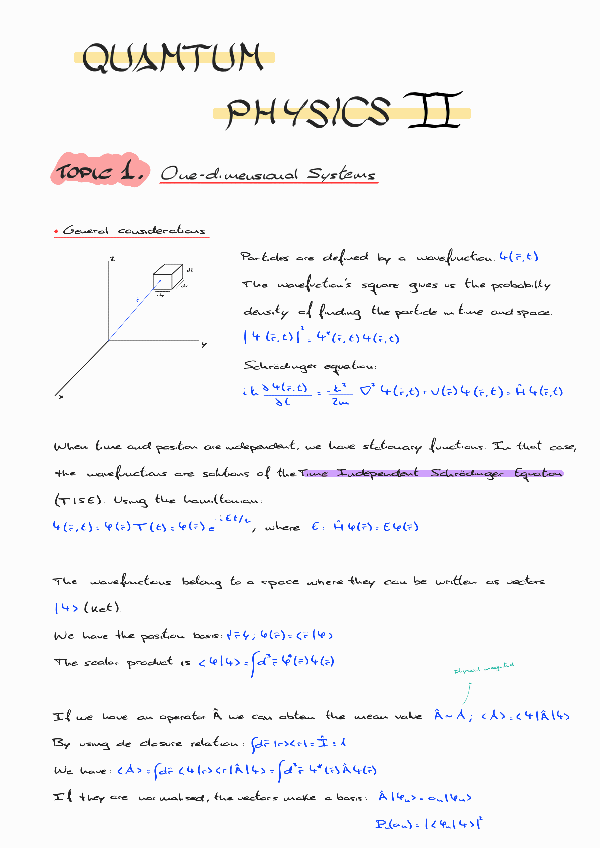 QUANTUM
PHYSICS II
TOPIC 1. One-dimensional Systems
• General considerations
z
y
x
r
Particles are defined by a wavefunction. Ψ(r̄,t)
The wavefuction's square gives us the probability
density of finding the particle in time and space.
|Ψ(r̄,t)|² = Ψ*(r̄,t)Ψ(r̄,t)
Schrödinger equation:
iħ ∂Ψ(r̄,t)/∂t = -ħ²/2m ∇² Ψ(r̄,t) + V(r̄)Ψ(r̄,t) = ĤΨ(r̄,t)
When time and position are independent, we have stationary functions. In that case,
the wavefunctions are solutions of the Time Independent Schrödinger Equation
(TISE). Using the hamiltonian:
Ψ(r̄,t) = φ(r̄)T(t) = φ(r̄)e^{-iEt/ħ}, where E: Ĥφ(r̄) = Eφ(r̄)
The wavefunctions belong to a space where they can be written as vectors
|Ψ> (Ket)
We have the position basis: ∀r̄ φ; φ(r̄) = <r|φ>
The scalar product is <φ|Ψ> = ∫d³r̄ φ*(r̄)Ψ(r̄)
If we have an operator Â we can obtain the mean value Â ~ A; <Â> = <Ψ|Â|Ψ>
By using de closure relation: ∫dr̄ |r><r| = Î = 1
We have: <Â> = ∫dr̄ <Ψ|r><r|Â|Ψ> = ∫d³r̄ Ψ*(r̄)ÂΨ(r̄)
If they are normalised, the vectors make a basis: Â|φₙ> = aₙ|φₙ>
P(aₙ) = |<φₙ|Ψ>|²